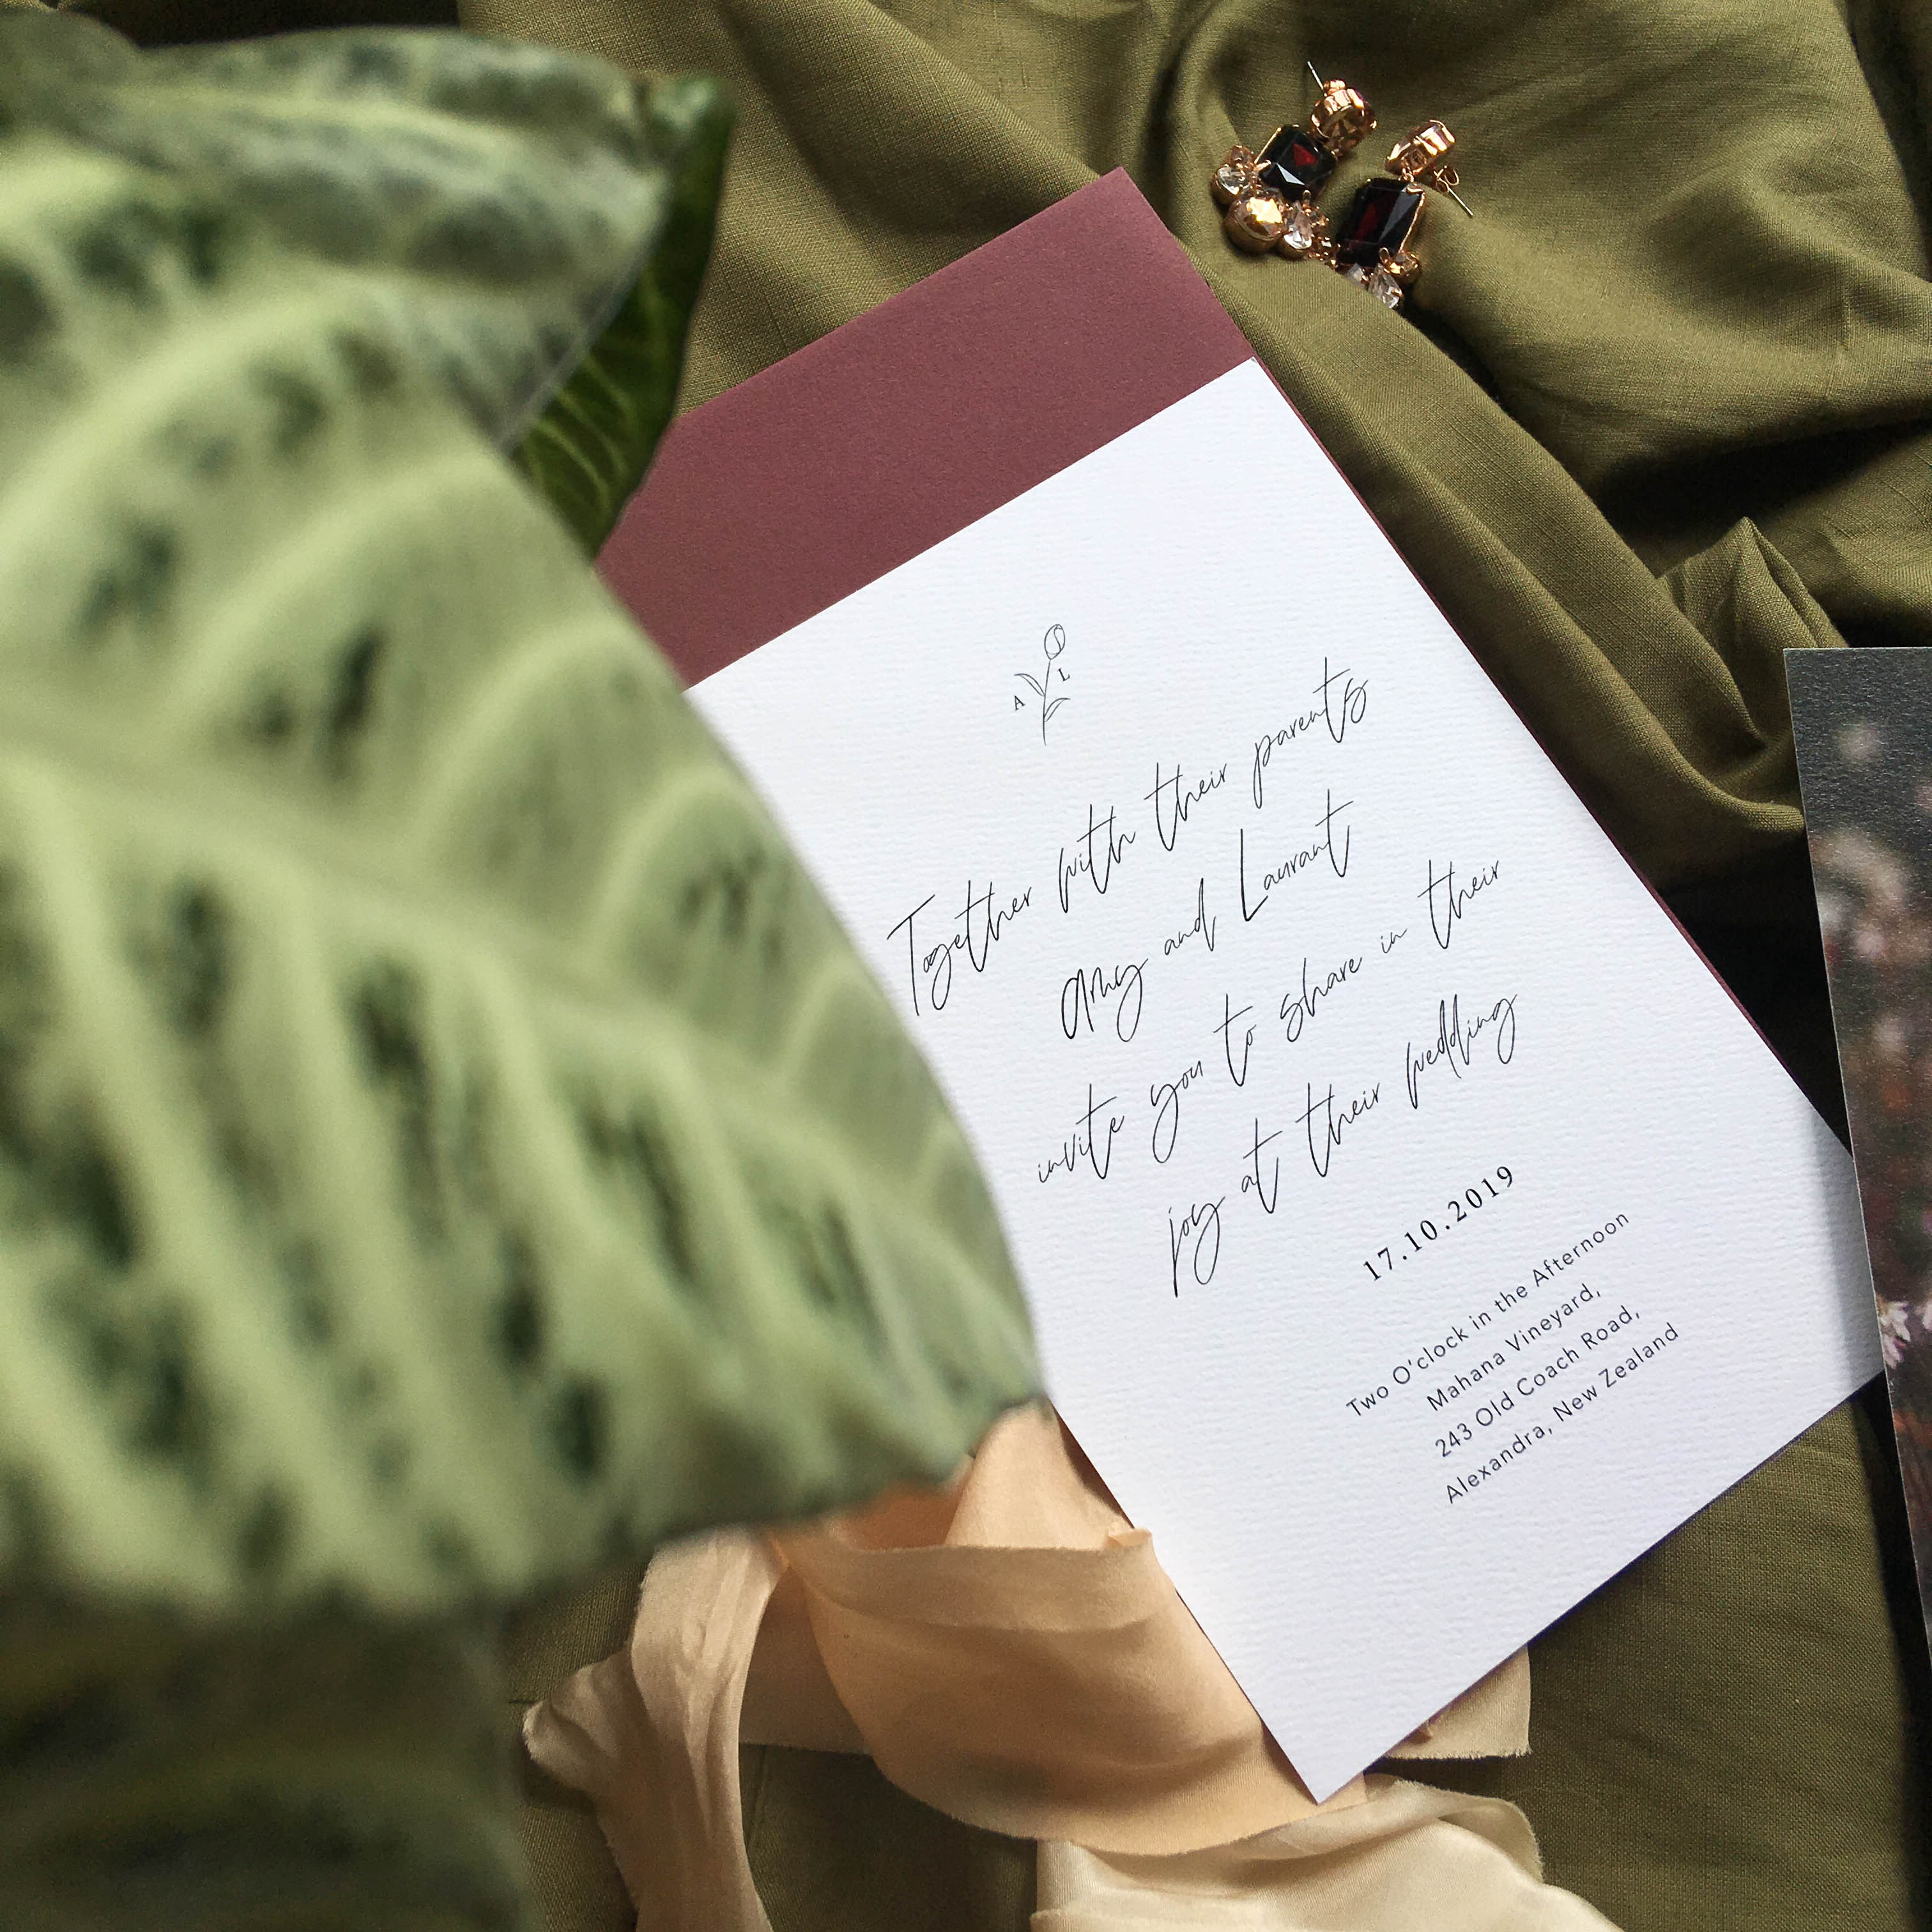 A L
Together with their parents
Amy and Laurant
invite you to share in their
joy at their wedding
17.10.2019
Two O'clock in the Afternoon
Mahana Vineyard,
243 Old Coach Road,
Alexandra, New Zealand